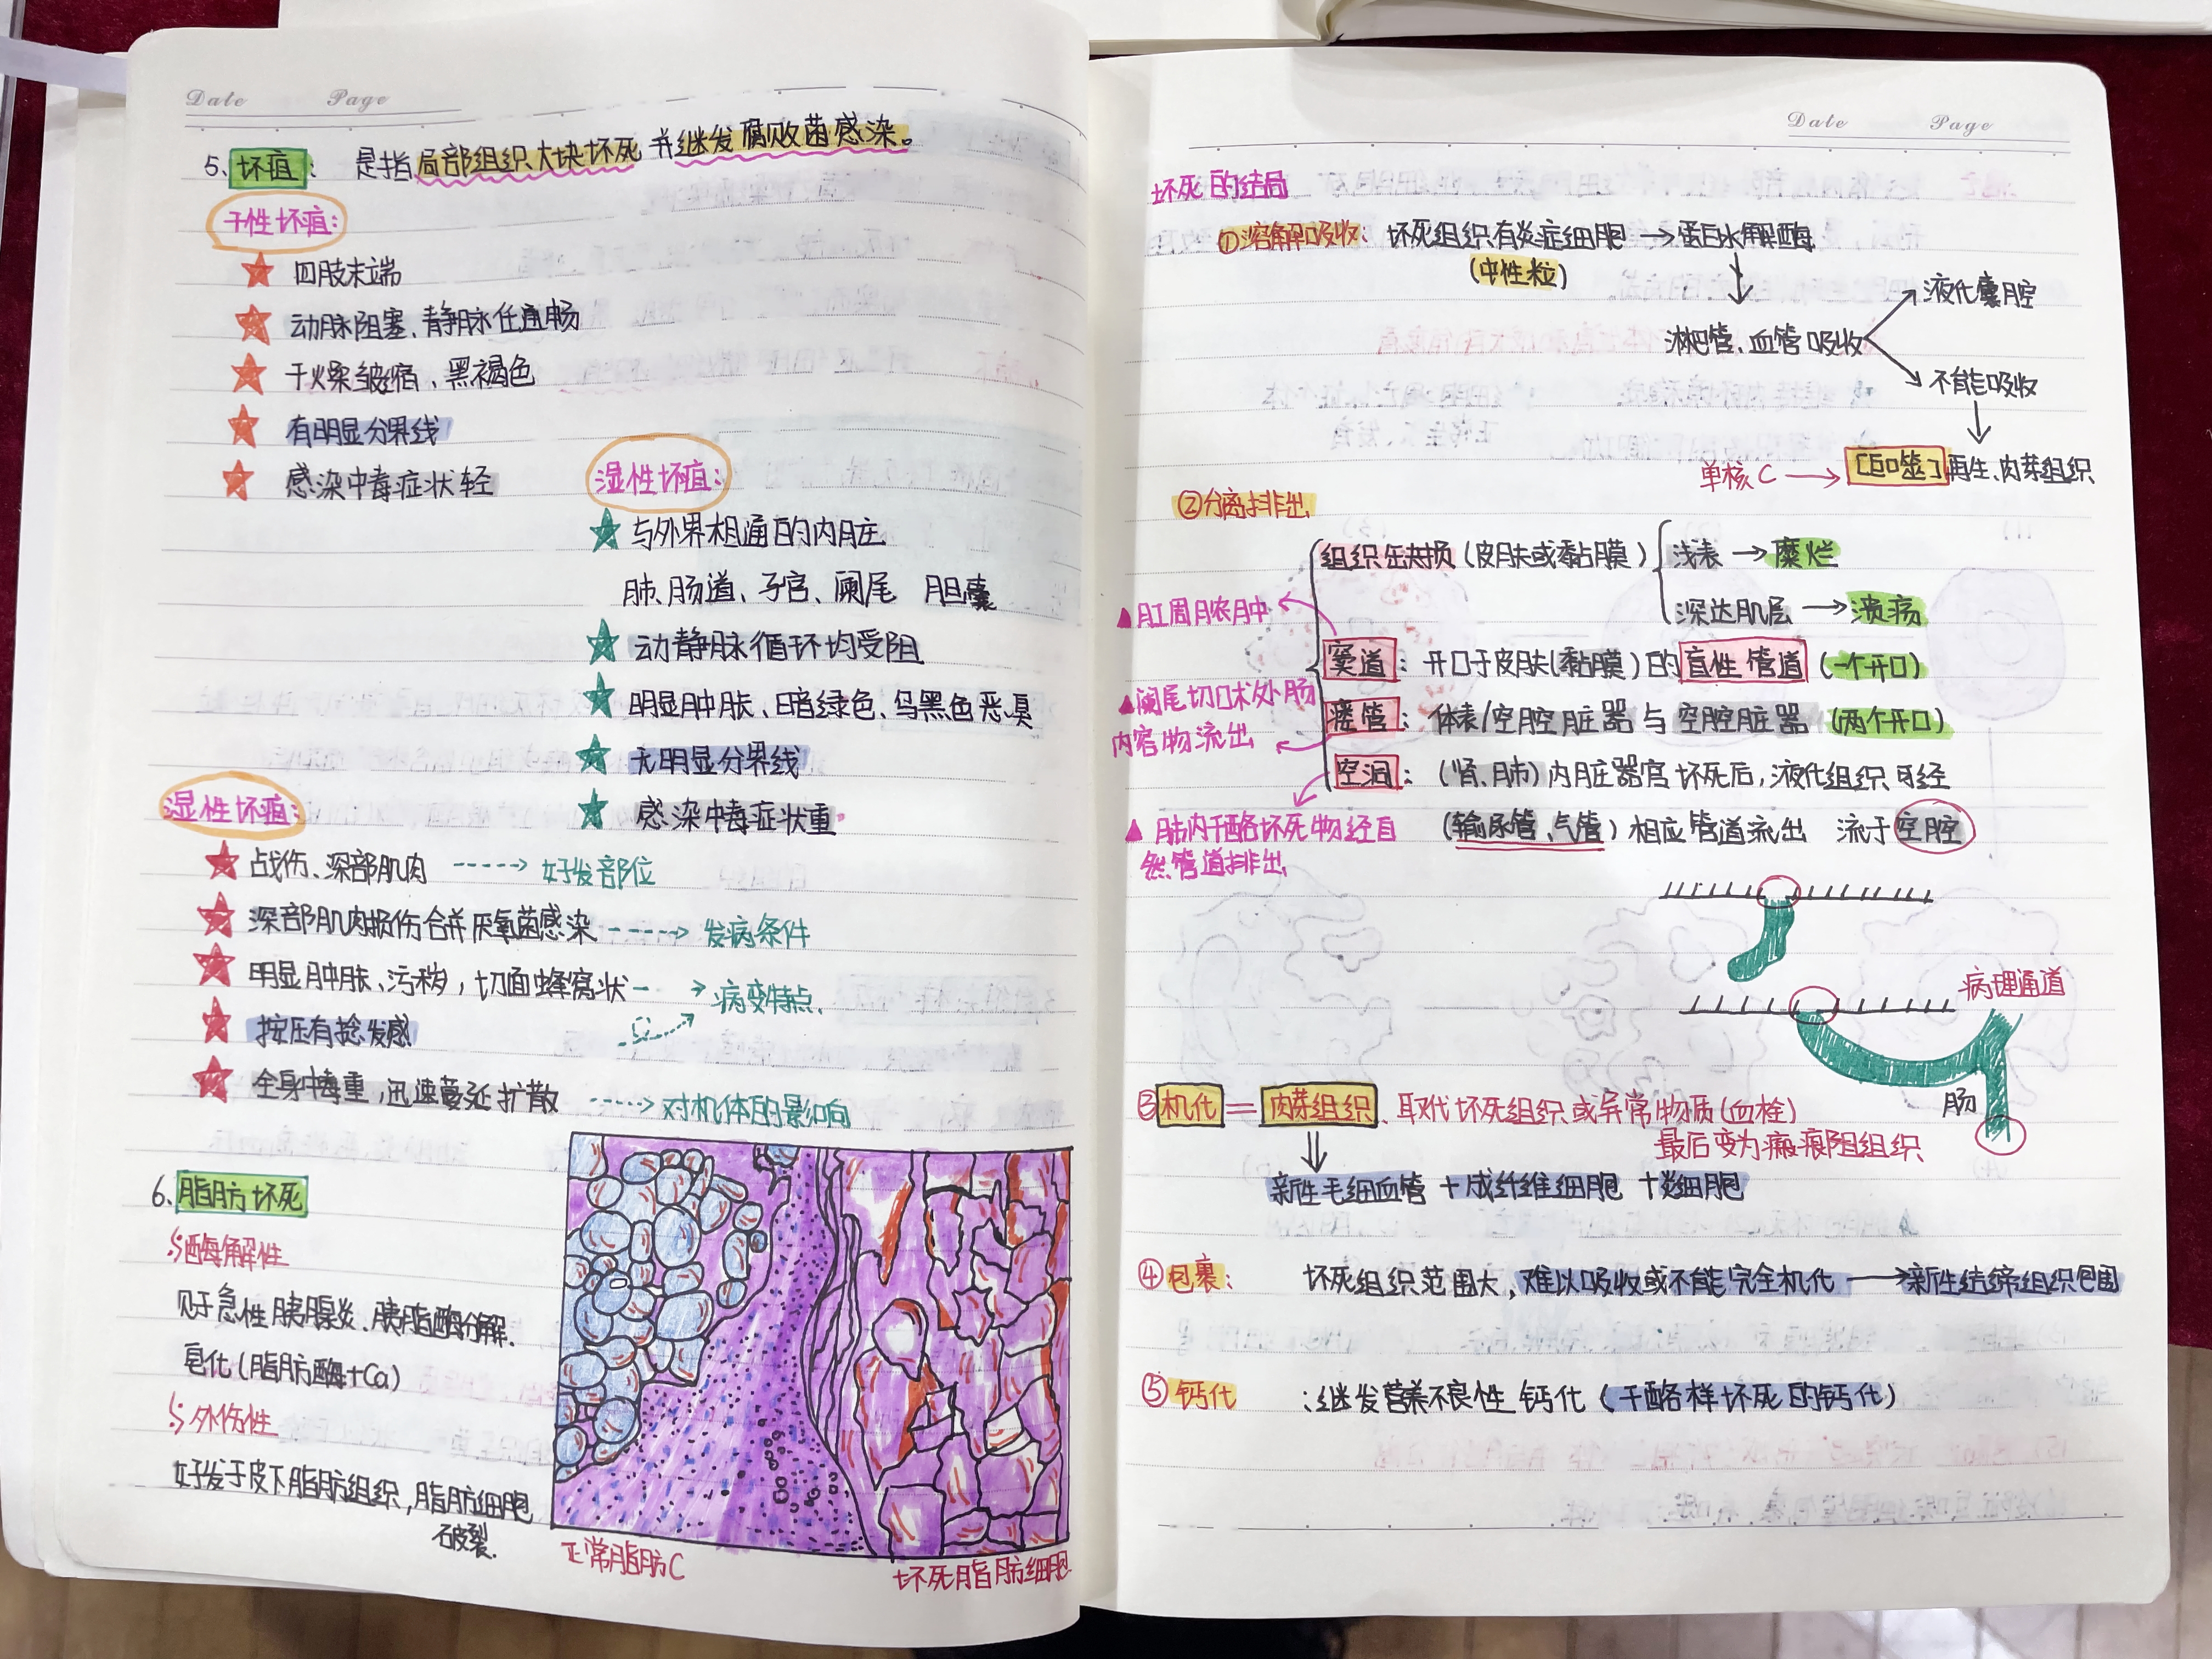 Date Page
5、坏疽：是指局部组织大块坏死并继发腐败菌感染。
干性坏疽：
四肢末端
动脉阻塞、静脉任通畅
干燥皱缩、黑褐色
有明显分界线
感染中毒症状轻
湿性坏疽：
与外界相通的内脏
肺、肠道、子宫、阑尾 胆囊
动静脉循环均受阻
明显肿胀、暗绿色、乌黑色恶臭
无明显分界线
感染中毒症状重
湿性坏疽：
占战伤、深部肌肉 → 好发部位
深部肌肉损伤合并厌氧菌感染 → 发病条件
明显肿胀、污秽，切面蜂窝状 → 病变特点
按压有捻发感
全身中毒重，迅速蔓延扩散 → 对机体的影响
6、脂肪坏死
酶解性
见于急性胰腺炎、胰脂酶分解.
皂化(脂肪酶+Ca)
外伤性
好发于皮下脂肪组织，脂肪细胞
破裂.
正常脂肪C
坏死脂肪细胞
Date Page
坏死的结局
①溶解吸收：坏死组织有炎症细胞 → 蛋白水解酶
(中性粒)
液化囊腔
淋巴管、血管吸收
不能吸收
单核C → [巨噬]再生、肉芽组织
②分离排出
组织缺损(皮肤或黏膜) 浅表 → 糜烂
深达肌层 → 溃疡
▲肛周脓肿
窦道：开口于皮肤(黏膜)的盲性管道(一个开口)
▲阑尾切口术处肠
内容物流出
瘘管：体表/空腔脏器与空腔脏器(两个开口)
空洞：(肾、肺)内脏器官坏死后，液化组织可经
▲肺内干酪坏死物经自
然管道排出
(输尿管、气管)相应管道流出 流于空腔
病理通道
肠
③机化=肉芽组织、取代坏死组织或异常物质(血栓)
最后变为瘢痕阻组织
新性毛细血管+成纤维细胞+炎细胞
④包裹：坏死组织范围大，难以吸收或不能完全机化 → 新生结缔组织包围
⑤钙化：继发营养不良性钙化(干酪样坏死的钙化)